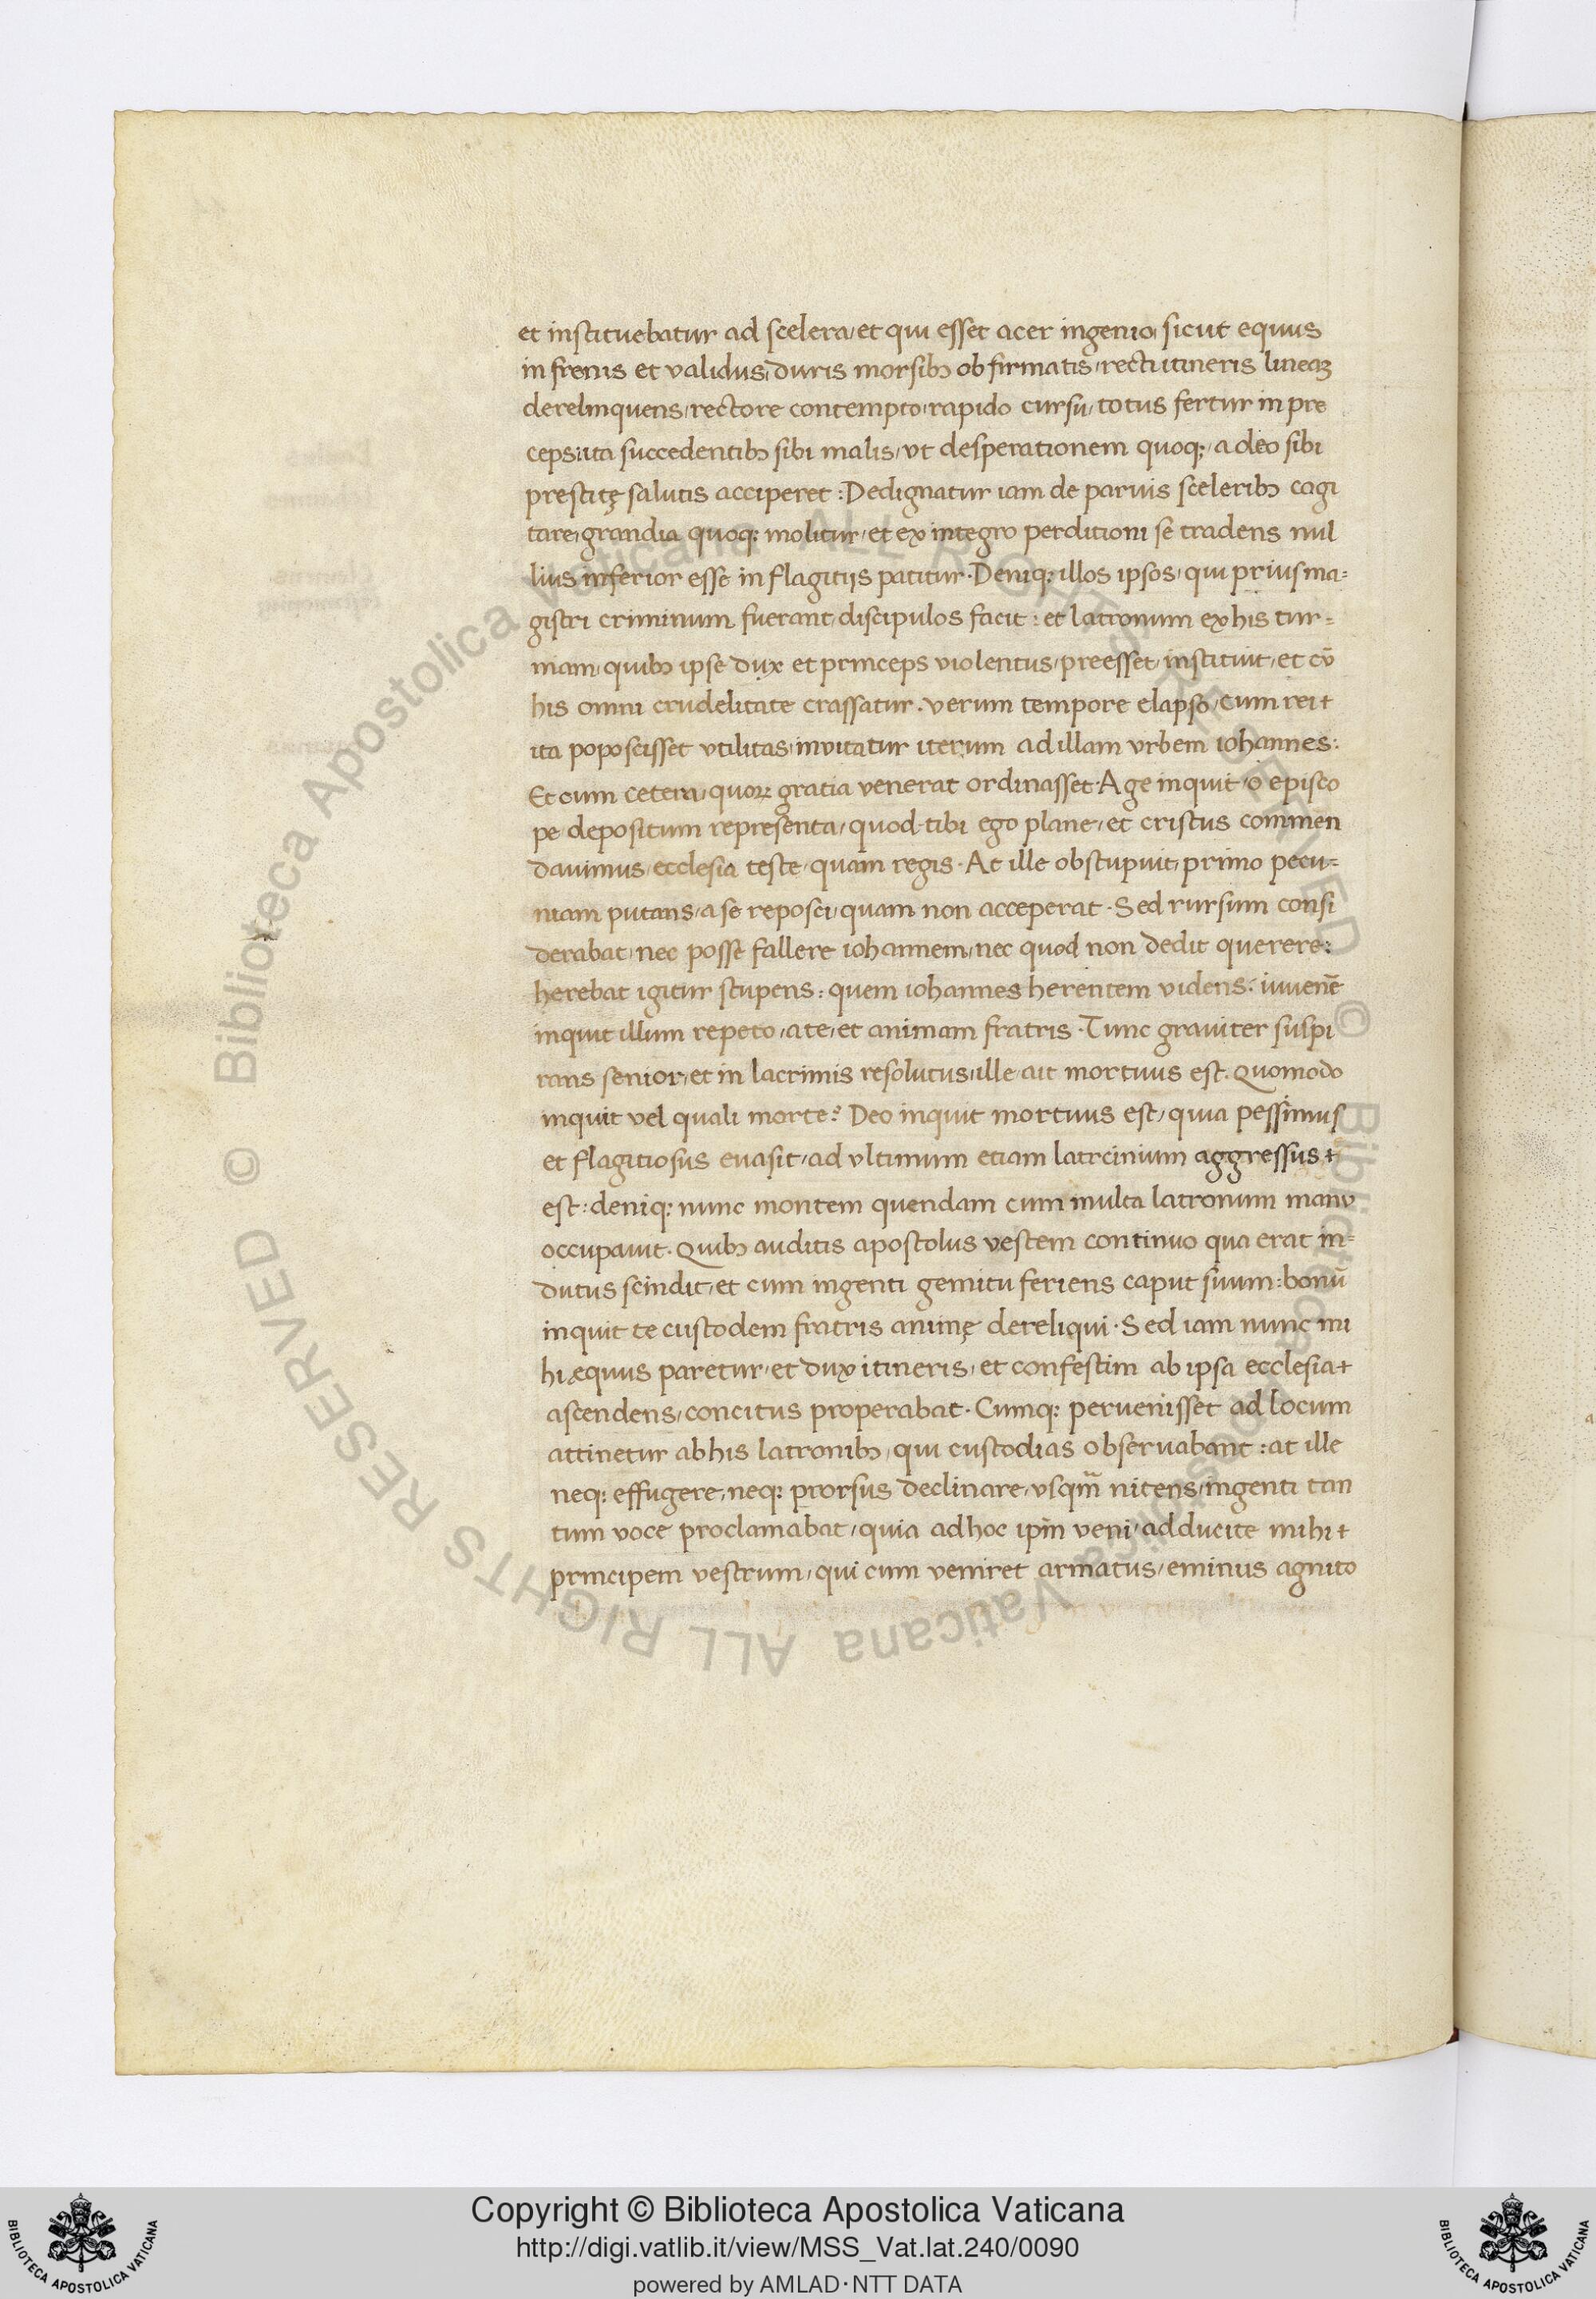 et instituebatur ad scelera, et qui esset acer ingenio, sicut equus
in frenis et validus, duris morsibꝫ obfirmatis, recti itineris lineaꝫ
derelinquens, rectore contempto, rapido cursu, totus fertur in pre
ceps: ita succedentibꝫ sibi malis, vt desperationem quoqꝫ, a deo sibi
prestitę salutis acciperet: Dedignatur iam de paruis sceleribꝫ cagi
tare, grandia quoqꝫ molitur, et ex integro perditioni se tradens nul
lius inferior esse in flagitijs patitur. Deniqꝫ illos ipsos, qui prius ma=
gistri criminum fuerant, discipulos facit: et latronum ex his tur=
mam, quibꝫ ipse dux et princeps violentus, preesset, instituit, et cū
his omni crudelitate crassatur. verum tempore elapso, cum rei +
ita poposcisset vtilitas, inuitatur iterum ad illam vrbem iohannes:
Et cum cetera, quoꝝ gratia venerat ordinasset. Age inquit, o episco
pe depositum representa, quod tibi ego plane, et cristus commen
dauimus, ecclesia teste, quam regis. At ille obstupuit, primo pecu=
niam putans, a se reposci, quam non acceperat. Sed rursum consi
derabat, nec posse fallere iohannem, nec quod non dedit querere:
herebat igitur stupens: quem iohannes herentem videns: iuuenē
inquit illum repeto, a te, et animam fratris. Tunc grauiter suspi
rans senior, et in lacrimis resolutus, ille ait mortuus est. Quomodo
inquit vel quali morte? Deo inquit mortuus est, quia pessimus
et flagitiosus euasit, ad vltimum etiam latrcinium aggressus +
est: deniqꝫ nunc montem quendam cum multa latronum manu
occupauit. Quibꝫ auditis apostolus vestem continuo qua erat in=
dutus scindit, et cum ingenti gemitu feriens caput suum: bonū
inquit te custodem fratris animę dereliqui. Sed iam nunc mi
hi æquus paretur, et dux itineris, et confestim ab ipsa ecclesia +
ascendens, concitus properabat. Cumqꝫ peruenisset ad locum
attinetur ab his latronibꝫ, qui custodias obseruabant: at ille
neqꝫ effugere, neqꝫ prorsus declinare, vsqm̄ nitens, ingenti tan
tum voce proclamabat, quia ad hoc ip̄m veni, adducite mihi +
principem vestrum, qui cum veniret armatus, eminus agnito
© Biblioteca Apostolica Vaticana ALL RIGHTS RESERVED © Biblioteca Apostolica Vaticana ALL RIGHTS RESERVED
Copyright © Biblioteca Apostolica Vaticana
http://digi.vatlib.it/view/MSS_Vat.lat.240/0090
powered by AMLAD·NTT DATA
BIBLIOTECA APOSTOLICA VATICANA
BIBLIOTECA APOSTOLICA VATICANA